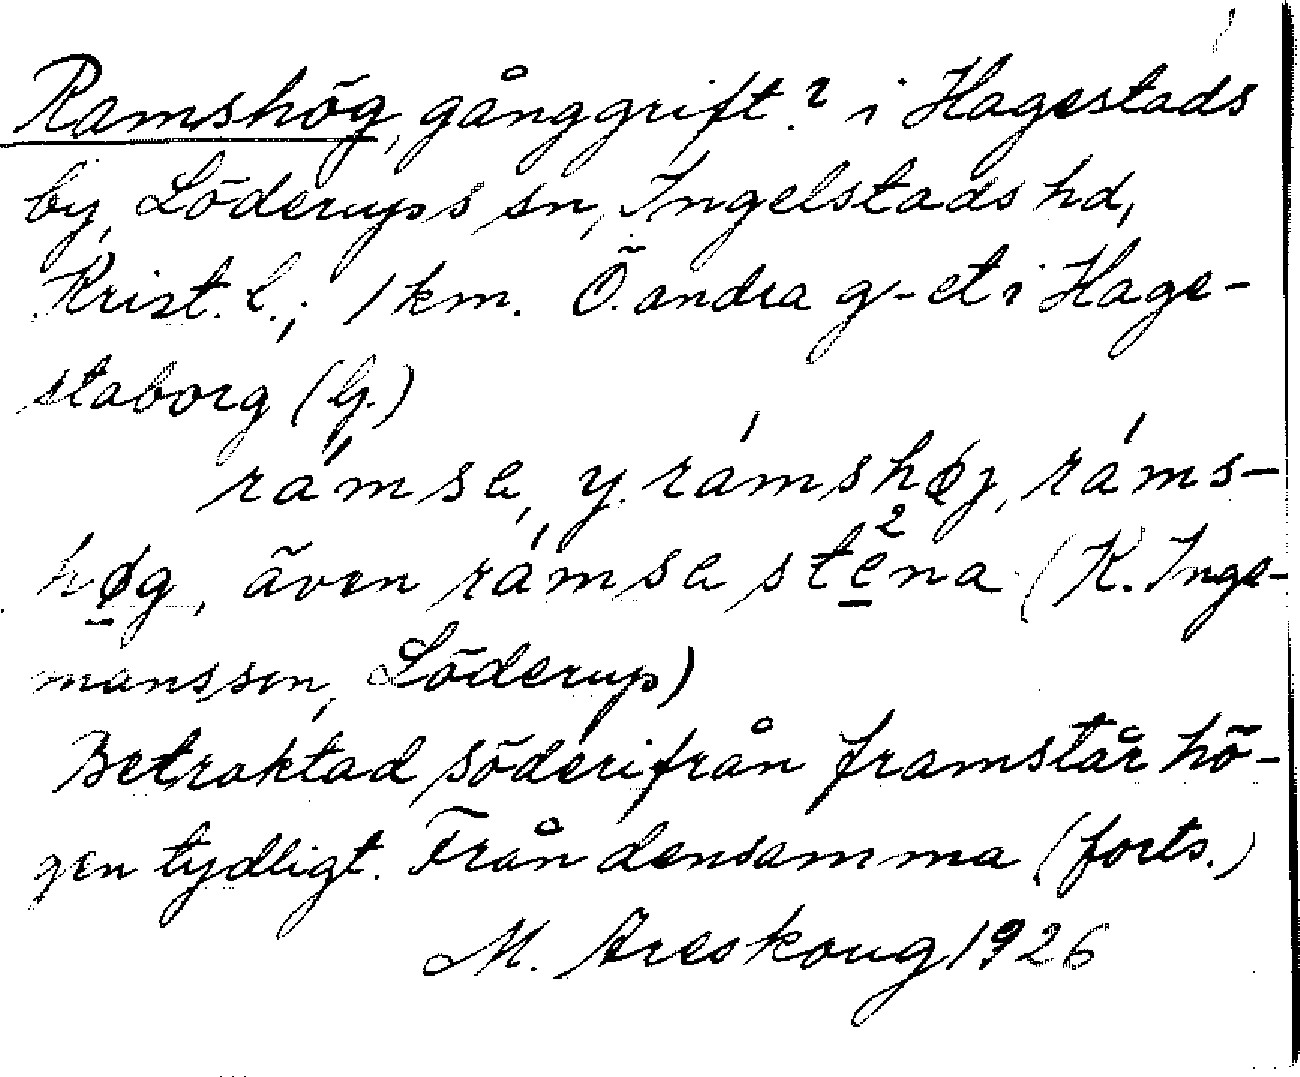 Ramshög, gånggrift? i Hagestads
by, Löderups sn, Ingelstads hd,
Krist. l.; 1 km. Ö. andra g-et i Hage-
staborg (G.)
rámsa, y. rámshøj, ráms-
høg, även rámsa stena (K. Inge-
mansson, Löderup)
Betraktad söderifrån framstår hö-
gen tydligt. Från densamma (forts.)
M. Areskoug 1926